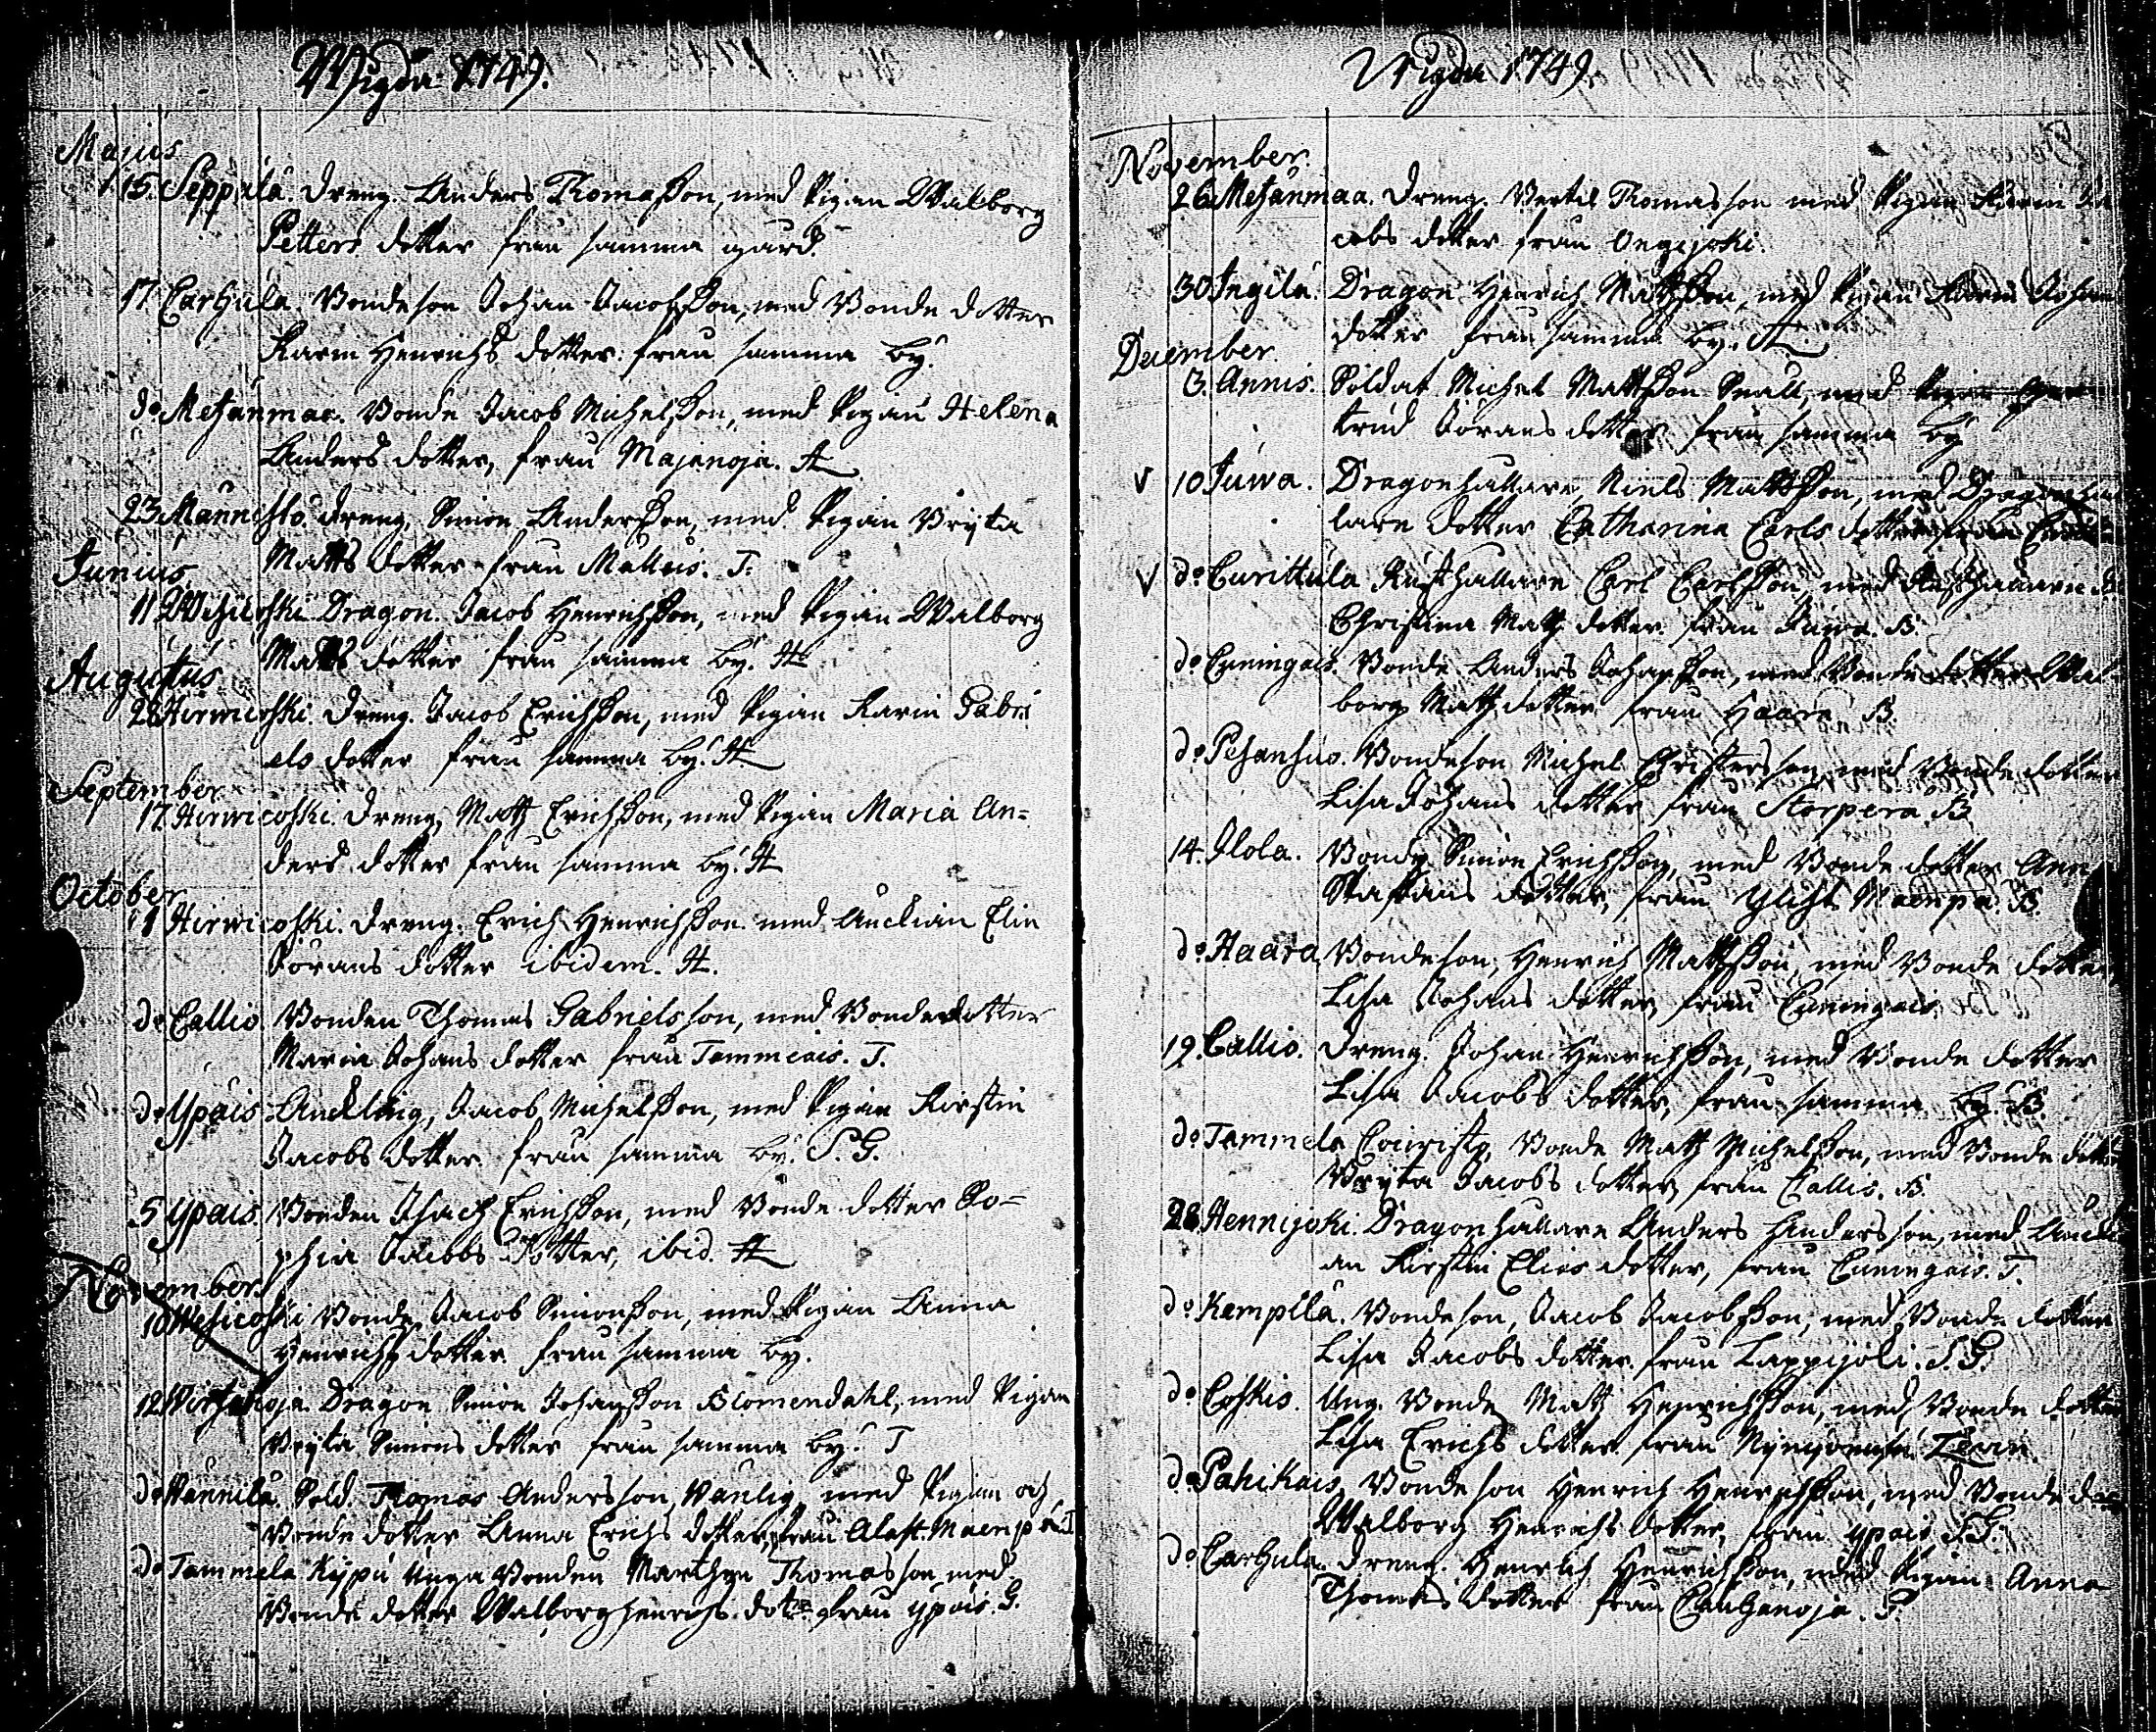 Wigda 1749.
Majus
15. Seppälä. Dreng. Anders Thomasson, med Pigan Walborg
Petters dotter från samma gård.
17. Carhula. Bondeson Johan Jacobsson, med Bonde dotter
Karin Henrichs dotter från samma by.
do Metsänmaa. Bonde Jacob Michelsson, med Pigan Helena
Anders dotter, från Majanoja. A
23. Mannisto. Dreng, Simon Andersson, med Pigan Bryta
Matts dotter från Mälleis. T.
Junius.
11 Wesicoski. Dragon. Jacob Henrichsson, med Pigan Walborg
Matts dotter från samma by. H
Augustus
28 Hirwicoski. Dreng. Jacob Erichsson, med Pigan Karin Gabri
els dotter från samma by. H
September
17. Hirwicoski. Dreng, Matz Erichsson, med Pigan Maria An=
ders dotter från samma by. H
October
1 Hirwicoski. Dreng. Erich Henrichsson med Änckian Elin
Görans dotter ibidem. H.
do Callio. Bonden Thomas Gabrielsson, med Bonde dotter
Maria Johans dotter från Tammiais. T.
do Ypäis Änckling, Jacob Michelsson, med Pigan Kirstin
Jacobs dotter från samma by. S. G.
5 Ypais. Bonden Isach Erichsson, med Bonde dotter So=
phia Jacobs dotter, ibid. H
November.
10 Wesicoski Bonde Jacob Simonsson, med Pigan Anna
Henrichs dotter från samma by.
12. Wirtzanoja. Dragon Simon Johansson Blomendahl, med Pigan
Bryta Simons dotter från samma by. T
do Vännilä. Sold. Thomas Andersson Vänlig, med Pigan och
Bonde dotter Anna Erichs dotter, från Alast. Mäenpä. T
do Tammela Kypü Unga Bonden Marthen Thomasson med
Bonde dotter Walborg Henrichs dotter från Ypäis. G.
Wigda 1749.
November.
26. Metsänmaa. Dreng. Bertil Thomasson med Pigan Karin Ja
cobs dotter från Ongijoki.
30 Ingilä. Dragon Henrich Matzson, med Pigan Karin Johans
dotter från samma by. H.
December.
3. Annis. Soldat Michel Mattsson Snäll, med Pigan
trud Görans dotter från samma by
V 10 Juwa. Dragonhållare Niels Mattsson, med Dragonhål
lare dotter Catharina Carls dotter från
V do Curittula Rusthållare Carl Carlsson med Rusthållare
Christina Matz dotter från Juwa. B.
do Cuningais. Bonde Anders Johansson, med Bonde dotter Wal
borg Matz dotter från Haara. B.
do Pesänsuo. Bondeson Michel Christersson, med Bonde dotter
Lisa Johans dotter från Storpera. B
14. Ilola. Bonde Simon Erichsson, med Bonde dotter Ann
Staffans dotter, från Ylist. Mäenpä. B.
do Haara Bondeson, Henrich Mattsson, med Bonde dotter
Lisa Johans dotter, från Cuningais.
19. Callio. Dreng. Johan Henrichsson, med Bonde dotter
Lisa Jacobs dotter, från samma by. B.
do Tammela Couristo, Bonde Matz Michelsson, med Bonde dotter
Bryta Jacobs dotter, från Callio. B.
28. Hennijoki. Dragonhållare Anders Andersson, med Ancki
an Kirstin Elias dotter, från Cuningais. T.
do Kämpilä. Bondeson, Jacob Jacobsson, med Bonde dotter
Lisa Jacobs dotter från Lappijoki. S. G.
do Coskis. Ung. Bonde Matz Henrichsson, med Bonde dotter
Lisa Erichs dotter från
do Pahikais. Bondeson Henrich Henrichsson, med Bonde do
Walborg Henrichs dotter, från Ypäis. S. G.
do Carhula. Dreng. Henrich Henrichsson, med Pigan Anna
Thomas dotter från Cauhanoja. T.